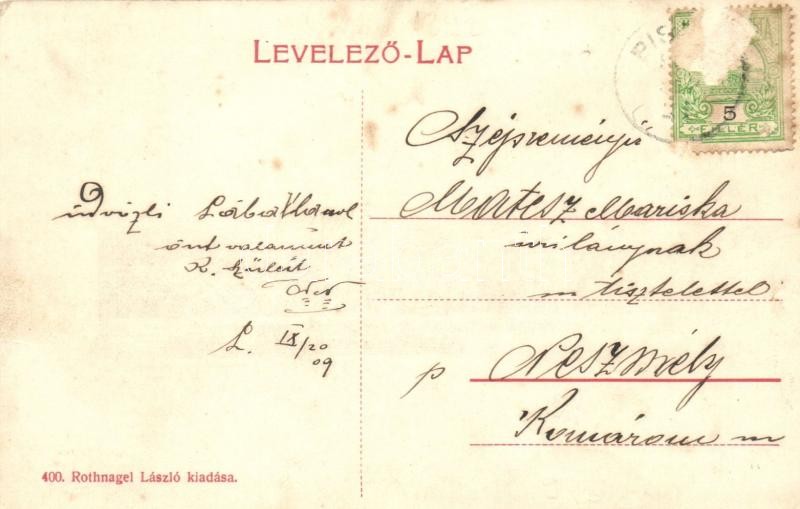 LEVELEZŐ-LAP
PIS
5
FILLÉR
Szépreményű
Matesz Mariska
úrilánynak
tisztelettel
p Neszmély
Komárom m
üdvözli Lábatlanol
önt valamint
K. szüleit
L. IX/20
09
400. Rothnagel László kiadása.